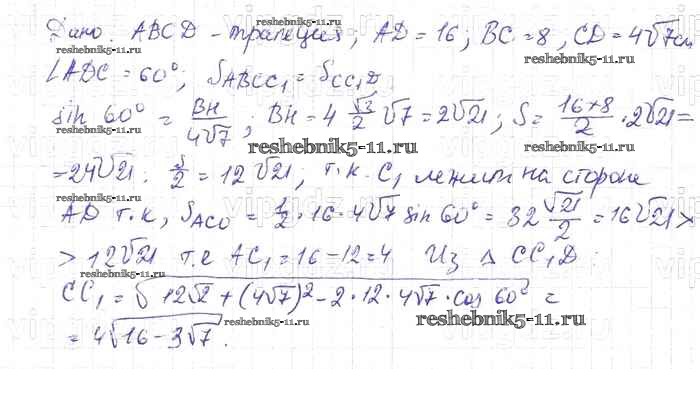 Дано: ABCD - трапеция, AD = 16; BC = 8, CD = 4√7см
∠ADC = 60°; S_ABCC₁ = S_CC₁D
sin 60° = BH/4√7; BH = 4 √3/2 √7 = 2√21; S = (16+8)/2 · 2√21 =
= 24√21. S/2 = 12√21; т.к. C₁ лежит на стороне
AD т.к, S_ACD = 1/2 · 16 · 4√7 sin 60° = 32 √21/2 = 16√21 >
> 12√21 т.е AC₁ = 16 - 12 = 4 Из Δ CC₁D:
CC₁ = √(12√2 + (4√7)² - 2 · 12 · 4√7 · cos 60°) =
= 4√(16 - 3√7).
reshebnik5-11.ru
reshebnik5-11.ru
reshebnik5-11.ru
reshebnik5-11.ru
reshebnik5-11.ru
reshebnik5-11.ru
reshebnik5-11.ru
reshebnik5-11.ru
reshebnik5-11.ru